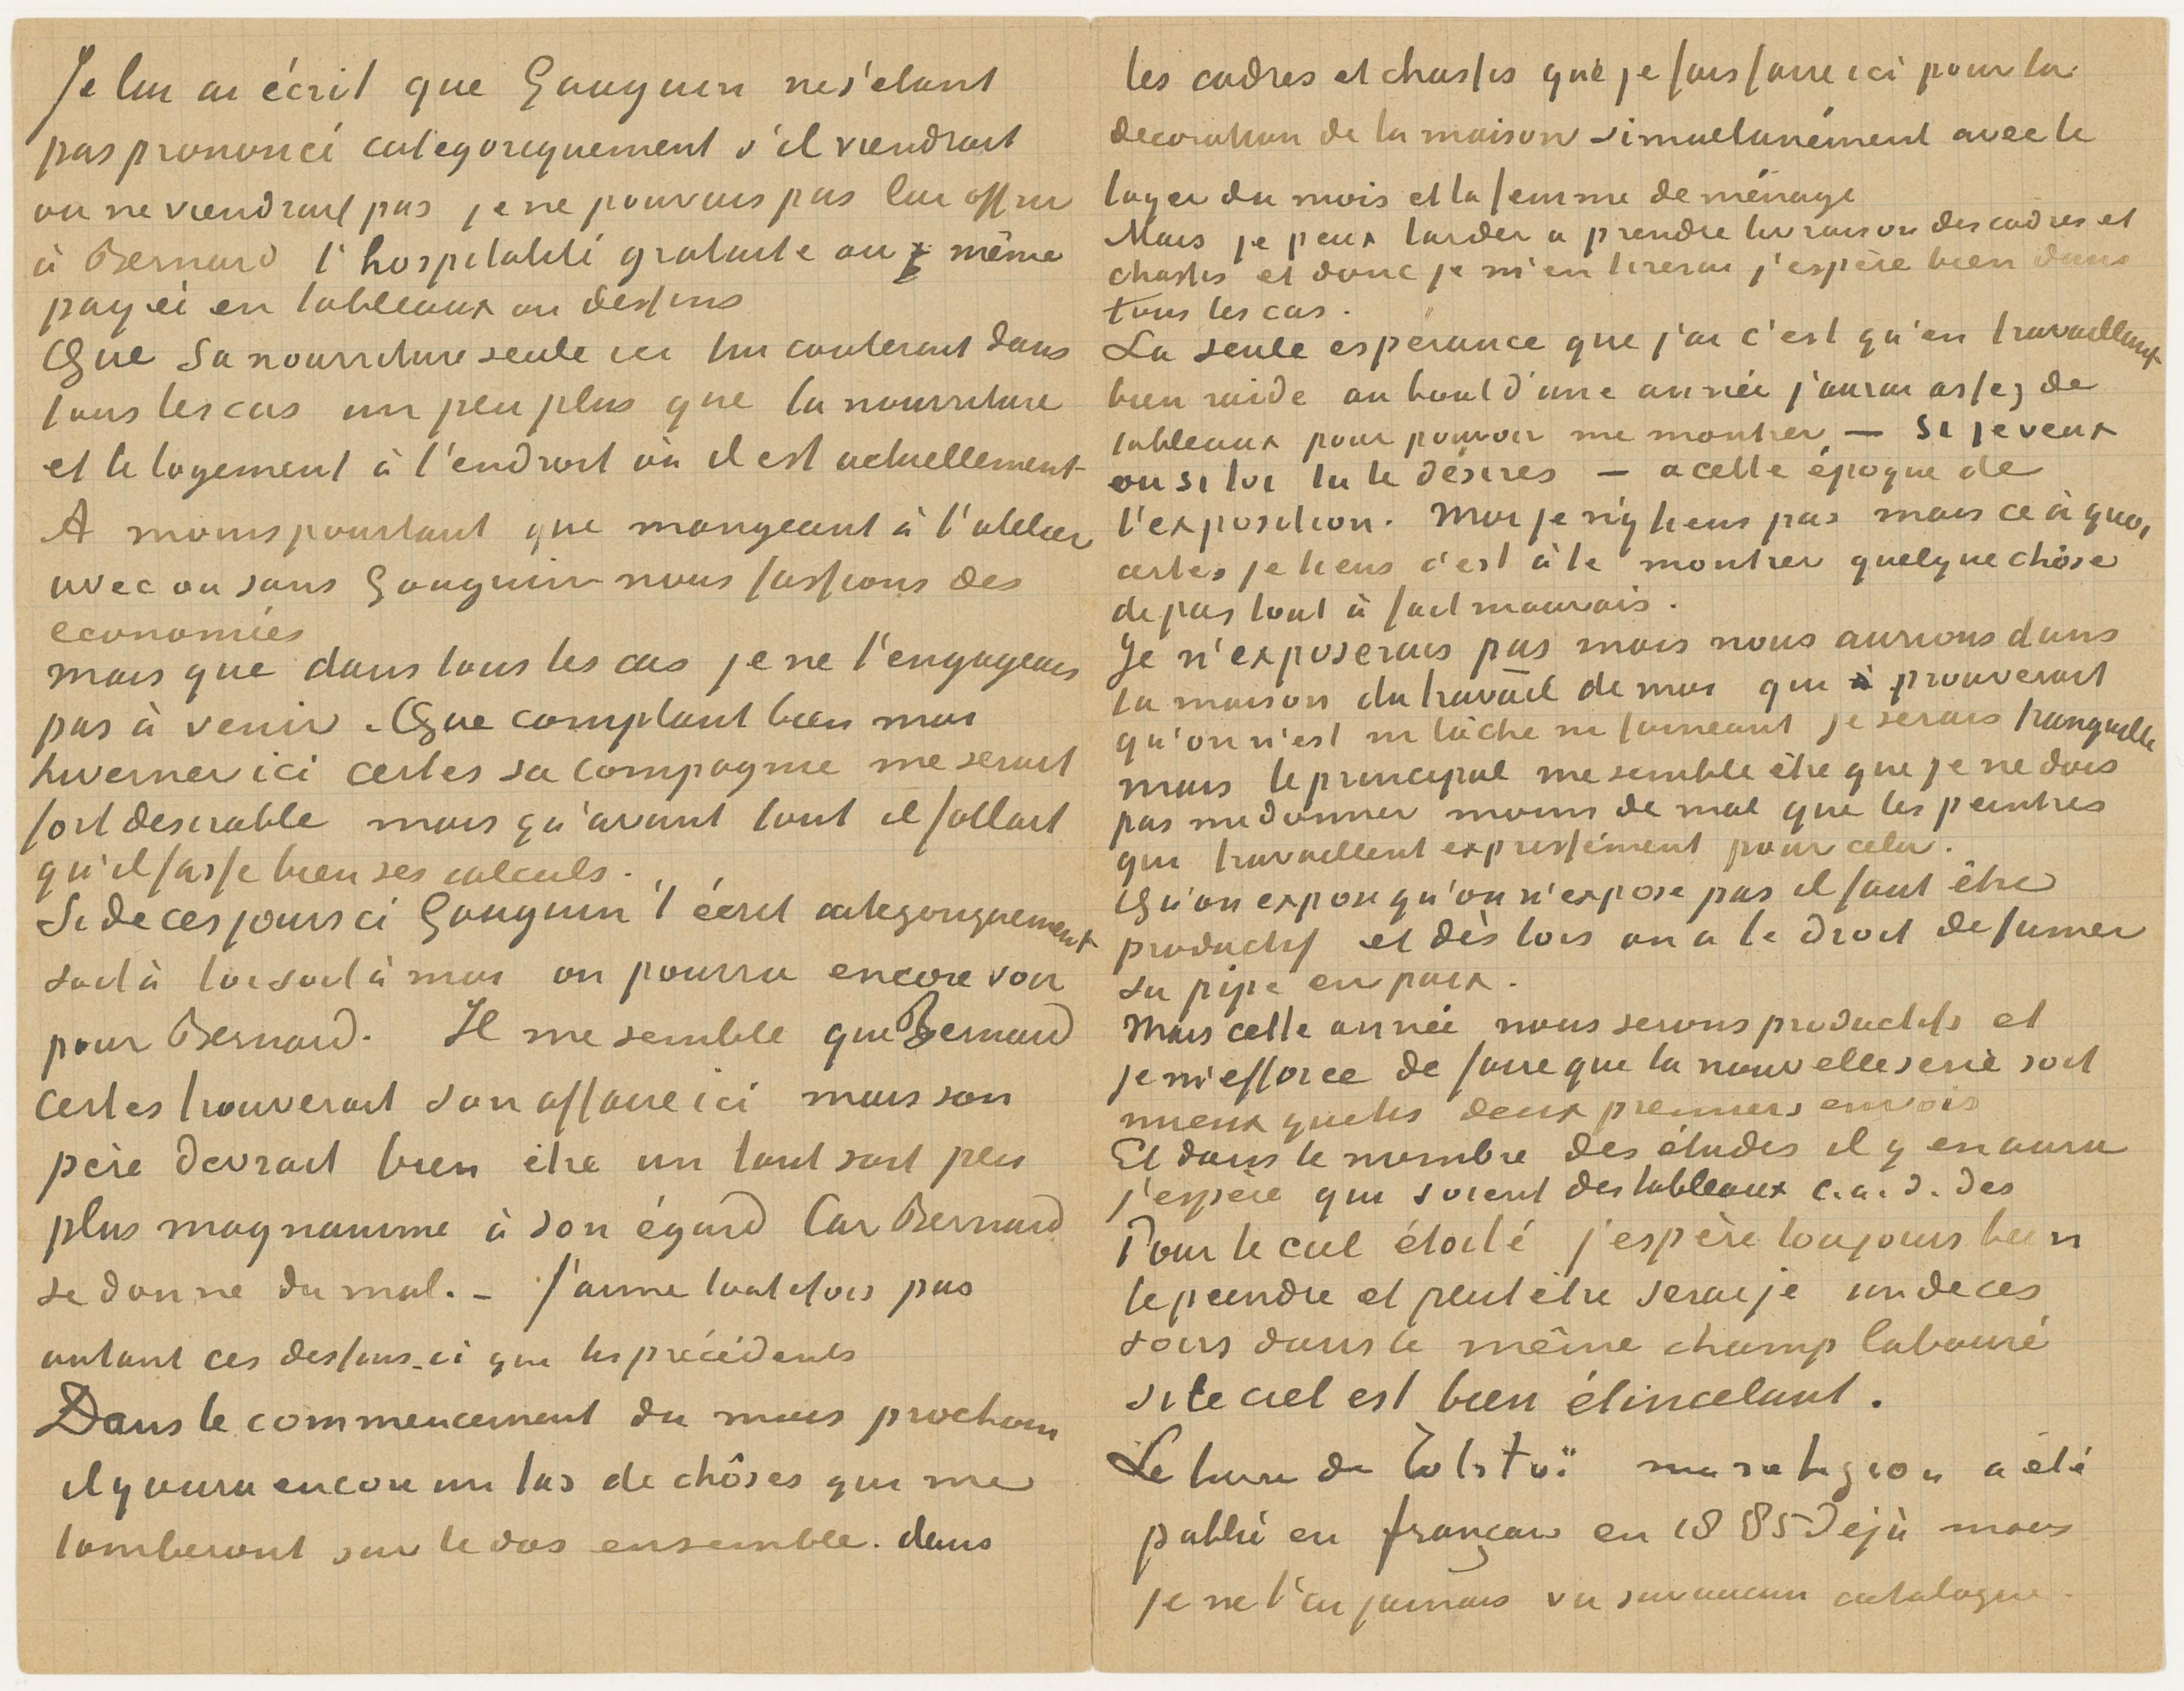 Je lui ai écrit que Gauguin ne s'etant
pas prononcé categoriquement s'il viendrait
ou ne viendrait pas je ne pouvais pas lui offrir
à Bernard l'hospitalité gratuite ou même
payée en tableaux ou dessins
Que Sa nourriture seule ici lui couterait dans
tous les cas un peu plus que la nourriture
et le logement à l'endroit où il est actuellement
A moins pourtant que mangeant à l'atelier
avec ou sans Gauguin nous fassions des
economies
mais que dans tous les cas je ne l'engageais
pas à venir. Que comptant bien moi
hiverner ici certes sa compagnie me serait
fort desirable mais qu'avant tout il fallait
qu'il fasse bien ses calculs.
Si de ces jours ci Gauguin t'écrit categoriquement
soit à toi soit à moi on pourra encore voir
pour Bernard. Il me semble que Bernard
certes trouverait son affaire ici mais son
père devrait bien être un tant soit peu
plus magnanime à son égard Car Bernard
se donne du mal. – j'aime toutefois pas
autant ces dessins-ci que les précédents
Dans le commencement du mois prochain
il y aura encore un tas de chôses qui me
tomberont sur le dos ensemble. dans
les cadres et chassis que je fais faire ici pour la
decoration de la maison simueltanément avec le
loyer du mois et la femme de ménage
Mais je peux tarder a prendre livraison des cadres et
chassis et donc je m'en tirerai j'espère bien dans
tous les cas.
La seule espérance que j'ai c'est qu'en travaillant
bien raide au bout d'une année j'aurai assez de
tableaux pour pouvoir me montrer – Si je veux
ou si toi tu le désires – a cette époque de
l'exposition. Moi je n'y tiens pas mais ce à quoi
certes je tiens c'est à te montrer quelque chôse
de pas tout à fait mauvais.
Je n'exposerais pas mais nous aurions dans
la maison du travail de moi qui prouverait
qu'on n'est ni lâche ni faineant je serais tranquille
mais le principal me semble être que je ne dois
pas me donner moins de mal que les peintres
qui travaillent expressément pour cela.
Qu'on expose qu'on n'expose pas il faut être
productif et dès lors on a le droit de fumer
sa pipe en paix.
Mais cette année nous serons productifs et
je m'efforce de faire que la nouvelle serie soit
mieux que les deux premiers envois
Et dans le nombre des études il y en aura
j'espère qui soient des tableaux c.a.d. des
Pour le ciel étoilé j'espère toujours bien
le peindre et peut être serai je un de ces
soirs dans le même champ labouré
si le ciel est bien étincelant.
Le livre de Tolstoï ma religion a été
publié en français en 1885 Déjà mais
je ne l'ai jamais vu sur aucun catalogue.